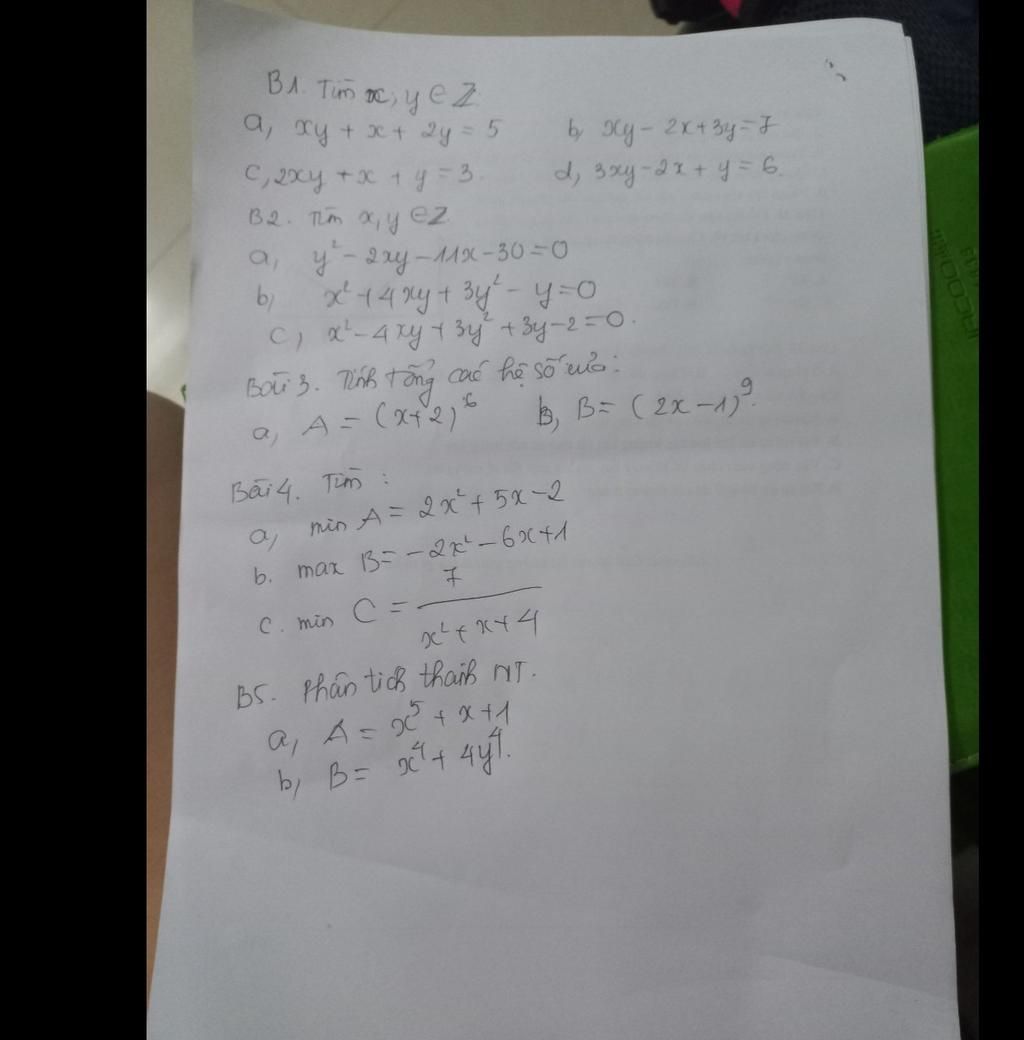 B1. Tìm x, y ∈ Z.
a, xy + x + 2y = 5 b, xy - 2x + 3y = 7
c, 2xy + x + y = 3. d, 3xy - 2x + y = 6.
B2. Tìm x, y ∈ Z.
a, y² - 2xy - 11x - 30 = 0
b, x² + 4xy + 3y² - y = 0
c, x² - 4xy + 3y² + 3y - 2 = 0.
Bài 3. Tính tổng các hệ số của:
a, A = (x + 2)⁶ b, B = (2x - 1)⁹.
Bài 4. Tìm :
a, min A = 2x² + 5x - 2
b. max B = -2x² - 6x + 1
c. min C = 7 / (x² + x + 4)
B5. Phân tích thành NT.
a, A = x⁵ + x + 1
b, B = x⁴ + 4y⁴.